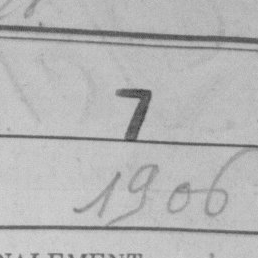 7
1906
NALEMENT